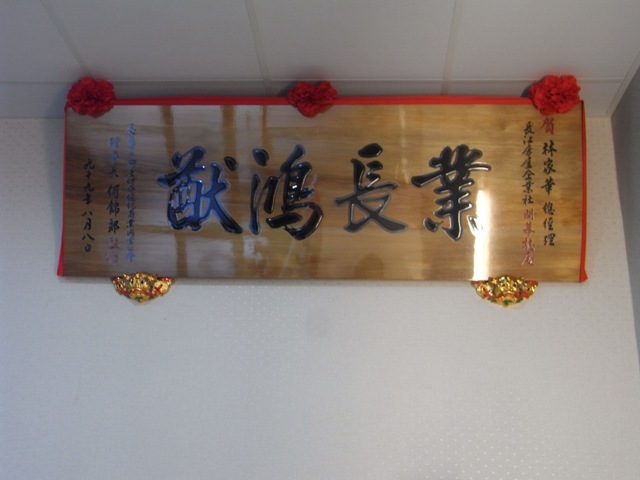 賀 林家華 總經理
長江房屋企業社 開幕誌慶
業長鴻猷
理事長 何錦郎
九十九年八月八日